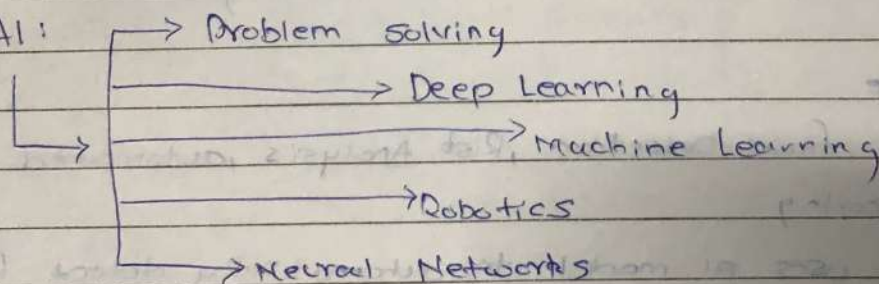 AI:
Problem solving
Deep Learning
Machine Learning
Robotics
Neural Networks